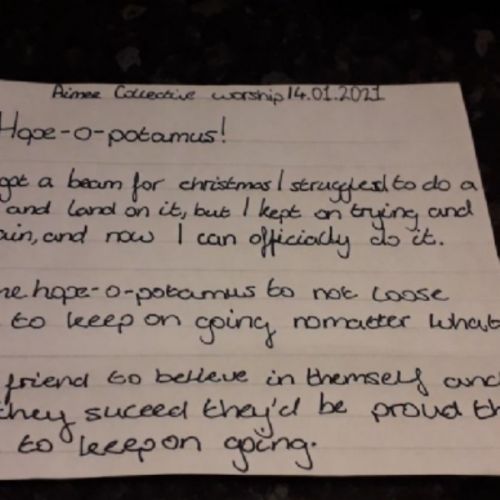 Aimee Collective worship 14.01.2021
Hope-o-potamus!
got a beam for christmas I struggled to do a
and land on it, but I kept on trying and
ain, and now I can officially do it.
he hope-o-potamus to not loose
to keep on going nomatter what
friend to believe in themself and
they suceed they'd be proud th
to keep on going.